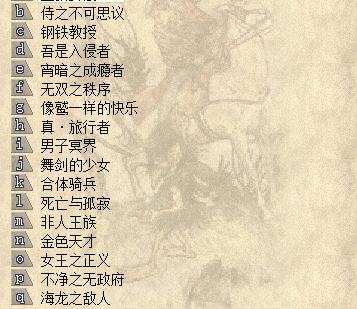 b 侍之不可思议
c 钢铁教授
d 吾是入侵者
e 宵暗之成瘾者
f 无双之秩序
g 像鹫一样的快乐
h 真·旅行者
i 男子冥界
j 舞剑的少女
k 合体骑兵
l 死亡与孤寂
m 非人王族
n 金色天才
o 女王之正义
p 不净之无政府
q 海龙之敌人